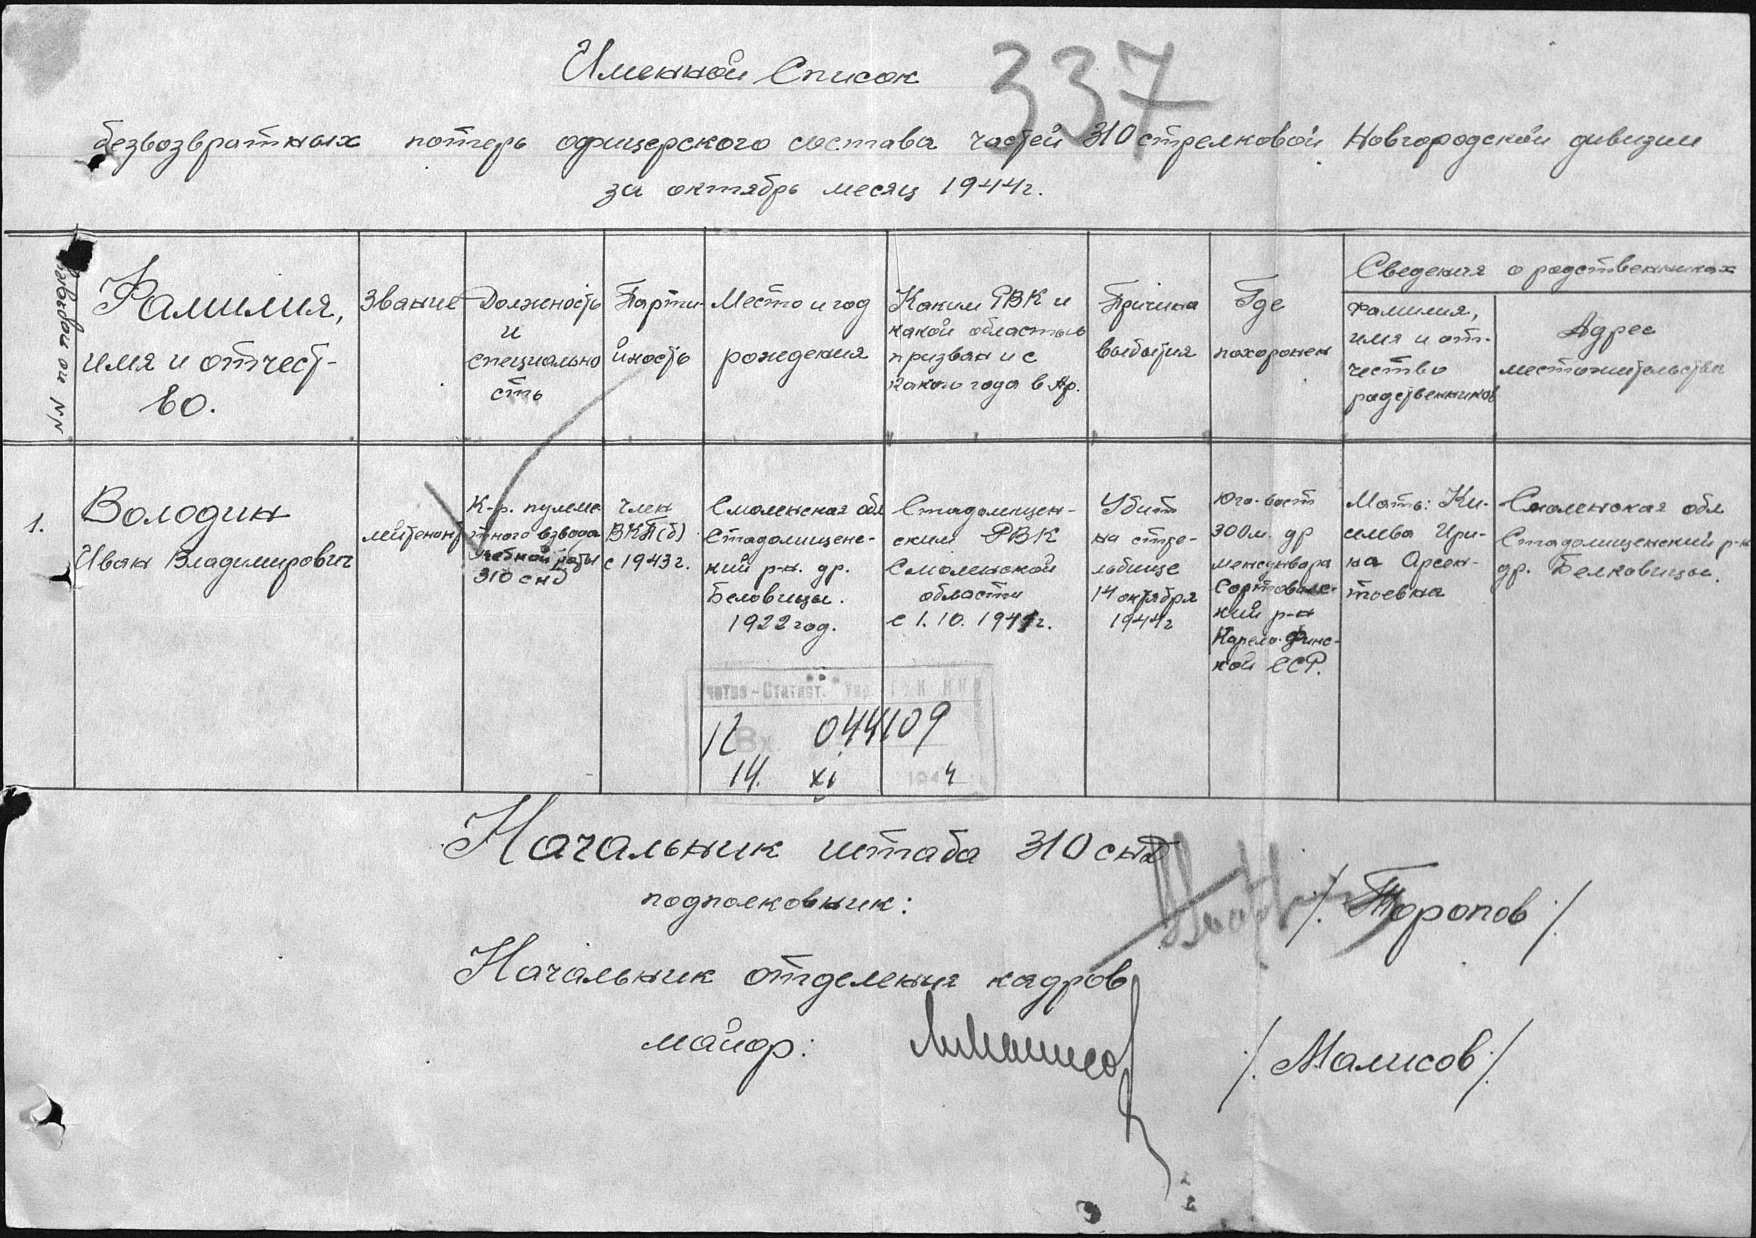 337
Именной Список
безвозвратных потерь офицерского состава частей 310 стрелковой Новгородской дивизии
за октябрь месяц 1944г.
NN по порядку
Фамилия,
имя и отчест-
во.
Звание
Должность
и
специально
сть
Парти-
йность
Место и год
рождения
Каким РВК и
какой областью
призван и с
какого года в Ар.
Причина
выбытия
Где
похоронен
Сведения о родственниках
Фамилия,
имя и от-
чество
родственников
Адрес
местожительства
1.
Володин
Иван Владимирович
лейтенант
К-р. пулеме
тного взвода
учебной роты
310 снд
член
ВКП(б)
с 1943г.
Смоленская обл
Стодолищенс-
кий р-н. др.
Беловицы.
1922 год.
Стодолищен-
ским РВК
Смоленской
области
с 1. 10. 1941г.
Убит
на стре-
льбище
14 октября
1944г
Юго-вост
300м. др
Сортовальс-
кий р-н
Карело-Финс-
кой ССР.
Мать: Ки-
селева Ири-
на Арсен-
тьевна
Смоленская обл
Стодолищенский р-н
др. Белковицы.
Учетно-Статист. Упр. ГУК НКО
Вх
12 044109
14. XI 1944
Начальник штаба 310 снд
подполковник:
/. Торопов ./
Начальник отделения кадров
майор:
/. Малисов ./